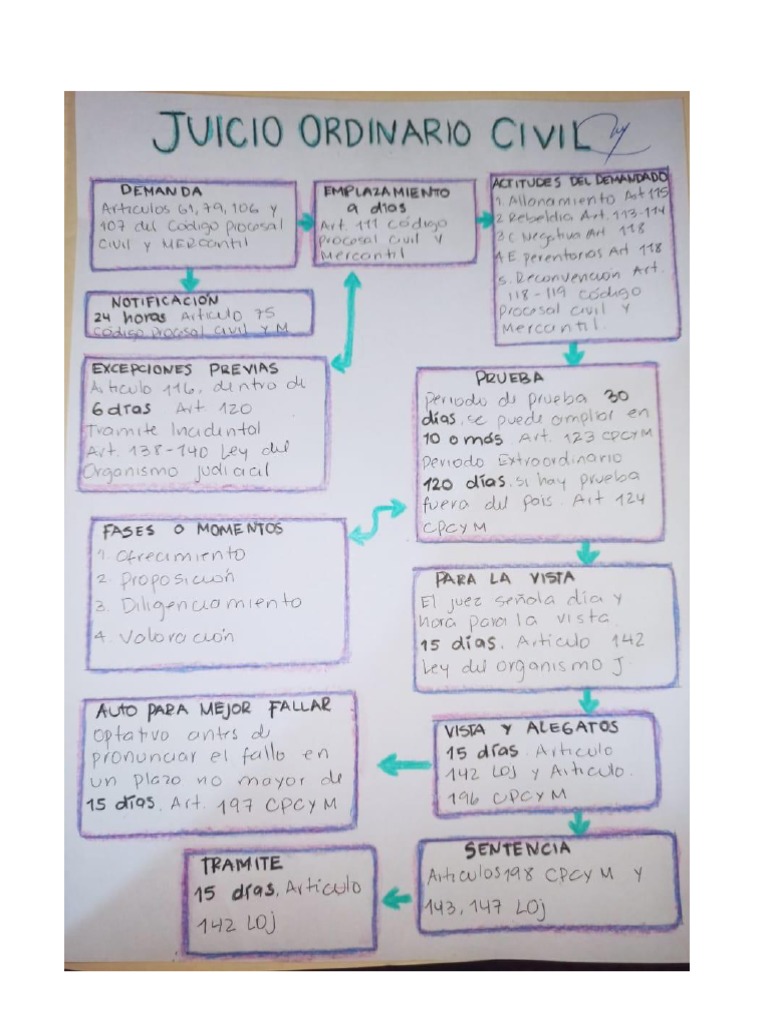 JUICIO ORDINARIO CIVIL
DEMANDA
Artículos 61, 79, 106 y
107 del Código Procesal
Civil y MERcantil
EMPLAZAMIENTO
9 días
Art. 111 Código
Procesal Civil y
Mercantil
ACTITUDES DEL DEMANDADO
1. Allanamiento Art 115
2 Rebeldia Art. 113-114
3 C Negativa Art 118
4 E perentorias Art 118
5. Reconvención Art.
118-119 Código
Procesal Civil y
Mercantil.
NOTIFICACIÓN
24 horas Artículo 75
Código Procesal Civil y M
EXCEPCIONES PREVIAS
Artículo 116, dentro de
6 días Art 120
Tramite Incidental
Art. 138-140 Ley del
Organismo judicial
PRUEBA
Periodo de prueba 30
días, se puede ampliar en
10 o más Art. 123 CPCYM
Periodo Extraordinario
120 días, si hay prueba
fuera del país. Art 124
CPCYM
FASES O MOMENTOS
1. Ofrecimiento
2. Proposición
3. Diligenciamiento
4. Valoración
PARA LA VISTA
El juez señala día y
hora para la vista
15 días. Artículo 142
Ley del organismo J.
AUTO PARA MEJOR FALLAR
Optativo antes de
pronunciar el fallo en
un plazo no mayor de
15 días. Art. 197 CPCYM
VISTA Y ALEGATOS
15 días. Artículo
142 LOJ y Artículo.
196 CPCYM
SENTENCIA
Artículos 198 CPCYM Y
143, 147 LOJ
TRAMITE
15 días, Artículo
142 LOJ